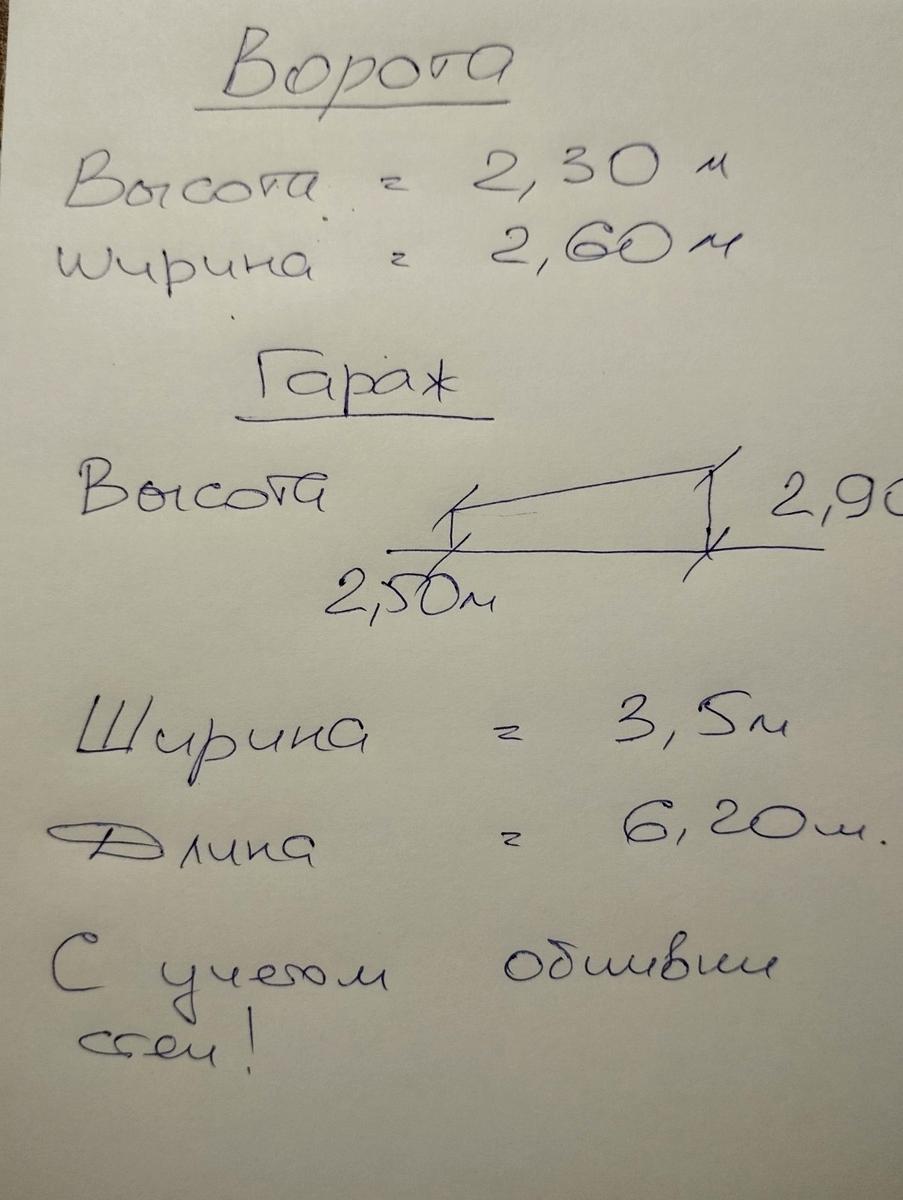 Ворота
Высота = 2,30 м
Ширина = 2,60 м
Гараж
Высота
2,90
2,50м
Ширина = 3,5м
Длина = 6,20м.
С учетом обшивки
стен!